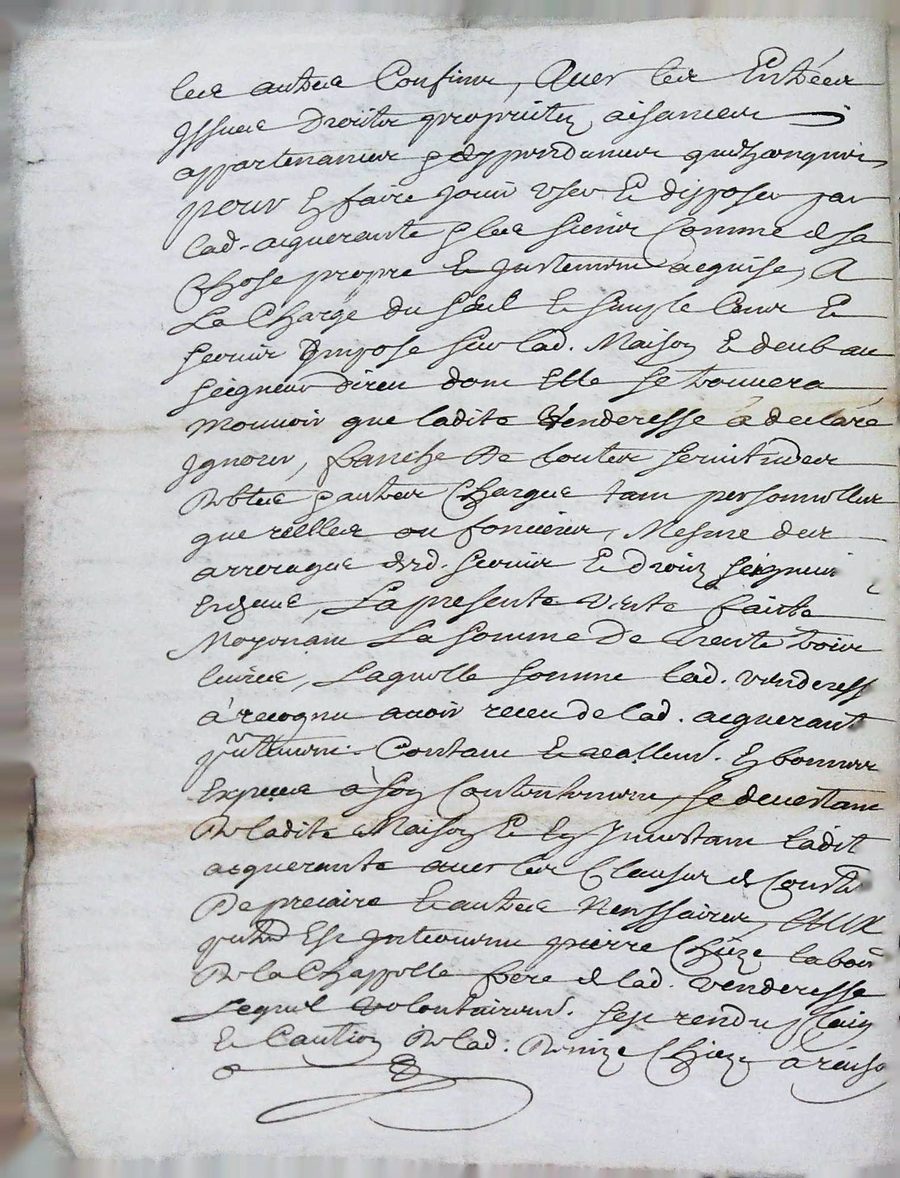 les autres Confins, Avec les Entrées
Issues Droits proprietez aisances
appartenances & deppendances quelconques
pour En faire jouir user Et disposer par
lad. aquerante & les siens Comme de sa
Chose propre Et justement acquise, A
La Charge du seul Et simple Cens Et
servis Impose sur lad. Maison Et deub au
seigneur direct dont Elle se trouvera
Mouvoir que ladite Venderesse a declaré
Ignorer, franche De toutes servitudes
debtes & autres Charges tant personnelles
que réelles ou foncieres, Mesme des
arrerages desd. servis Et droitz seigneuri
La presente vente faicte
Moyenant La somme De trente trois
livres, Laquelle somme lad. venderess
à recognu avoir receu de lad. aquerant
Contant Et reallem. En bonnes
Especes à son Contentement, se devestant
De ladite Maison Et En Investant ladit
aquerante avec les Clauses de Constit
De precaire Et autres Necessaires,
Est Intervenu pierre Chieze labou
De la Chappelle frere de lad. venderesse
Lequel volontairem. sest rendu plaige
Et Caution De lad. Denize Chieze